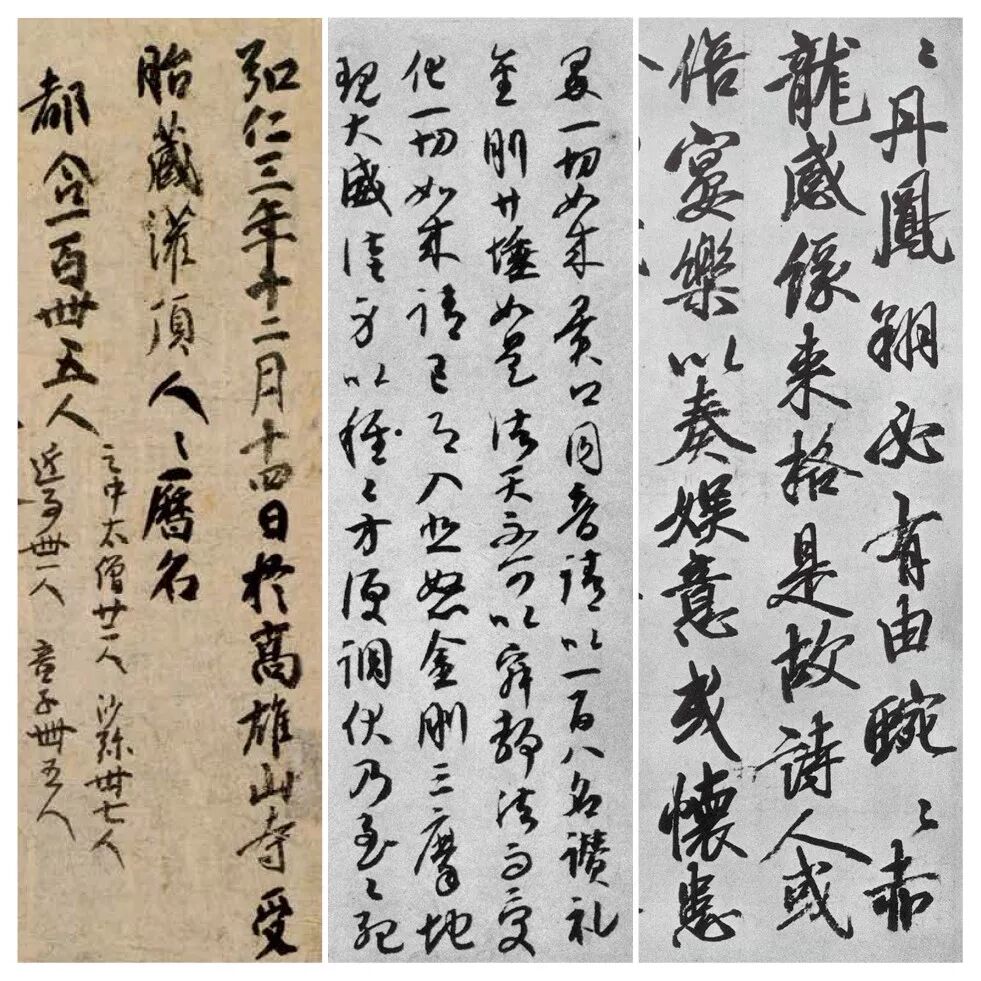 〻丹鳳翔必有由蜿〻赤
龍感縁来格是故詩人或
倍宴樂以奏娯意或懷患
一切如来異口同音請以一百八名讃礼
金剛廾埵如是諸天不可以寂静法而受
化一切如来請已即入忿怒金剛三摩地
現大威徳身以種〻方便調伏乃至〻死
弘仁三年十二月十四日於高雄山寺受
胎藏灌頂人〻暦名
都合一百卌五人
之中太僧廿二人 沙弥卅七人
近事卌一人 童子卌五人